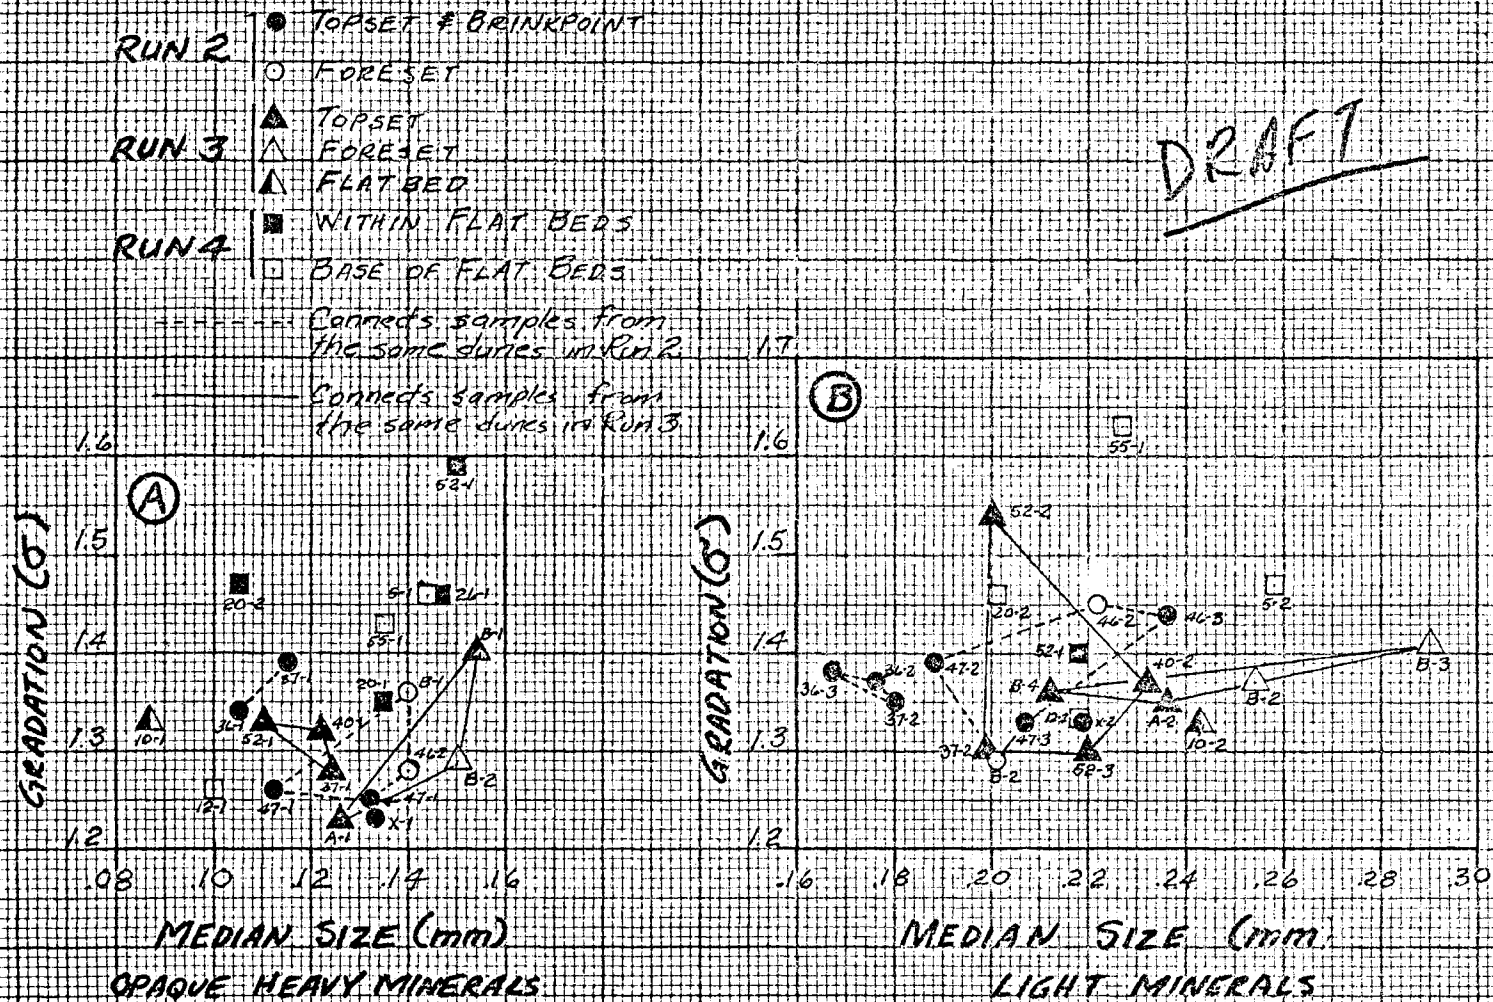 RUN 2
TOPSET & BRINKPOINT
FORESET
RUN 3
TOPSET
FORESET
FLAT BED
RUN 4
WITHIN FLAT BEDS
BASE OF FLAT BEDS
Connects samples from
the same dunes in Run 2
Connects samples from
the same dunes in Run 3
DRAFT
A
GRADATION (σ)
1.6
1.5
1.4
1.3
1.2
52-1
20-2
5-1
26-1
55-1
B-1
37-1
20-1
B-1
36-1
52-1
40-1
10-1
46-2
B-2
37-1
12-1
47-1
47-1
X-1
A-1
.08
.10
.12
.14
.16
MEDIAN SIZE (mm)
OPAQUE HEAVY MINERALS
B
GRADATION (σ)
1.7
1.6
1.5
1.4
1.3
1.2
55-1
52-2
5-2
20-2
46-2
46-3
52-1
47-2
40-2
B-3
36-3
36-2
B-4
B-2
37-2
A-2
X-2
10-2
47-3
37-2
B-2
52-3
.16
.18
.20
.22
.24
.26
.28
.30
MEDIAN SIZE (mm)
LIGHT MINERALS